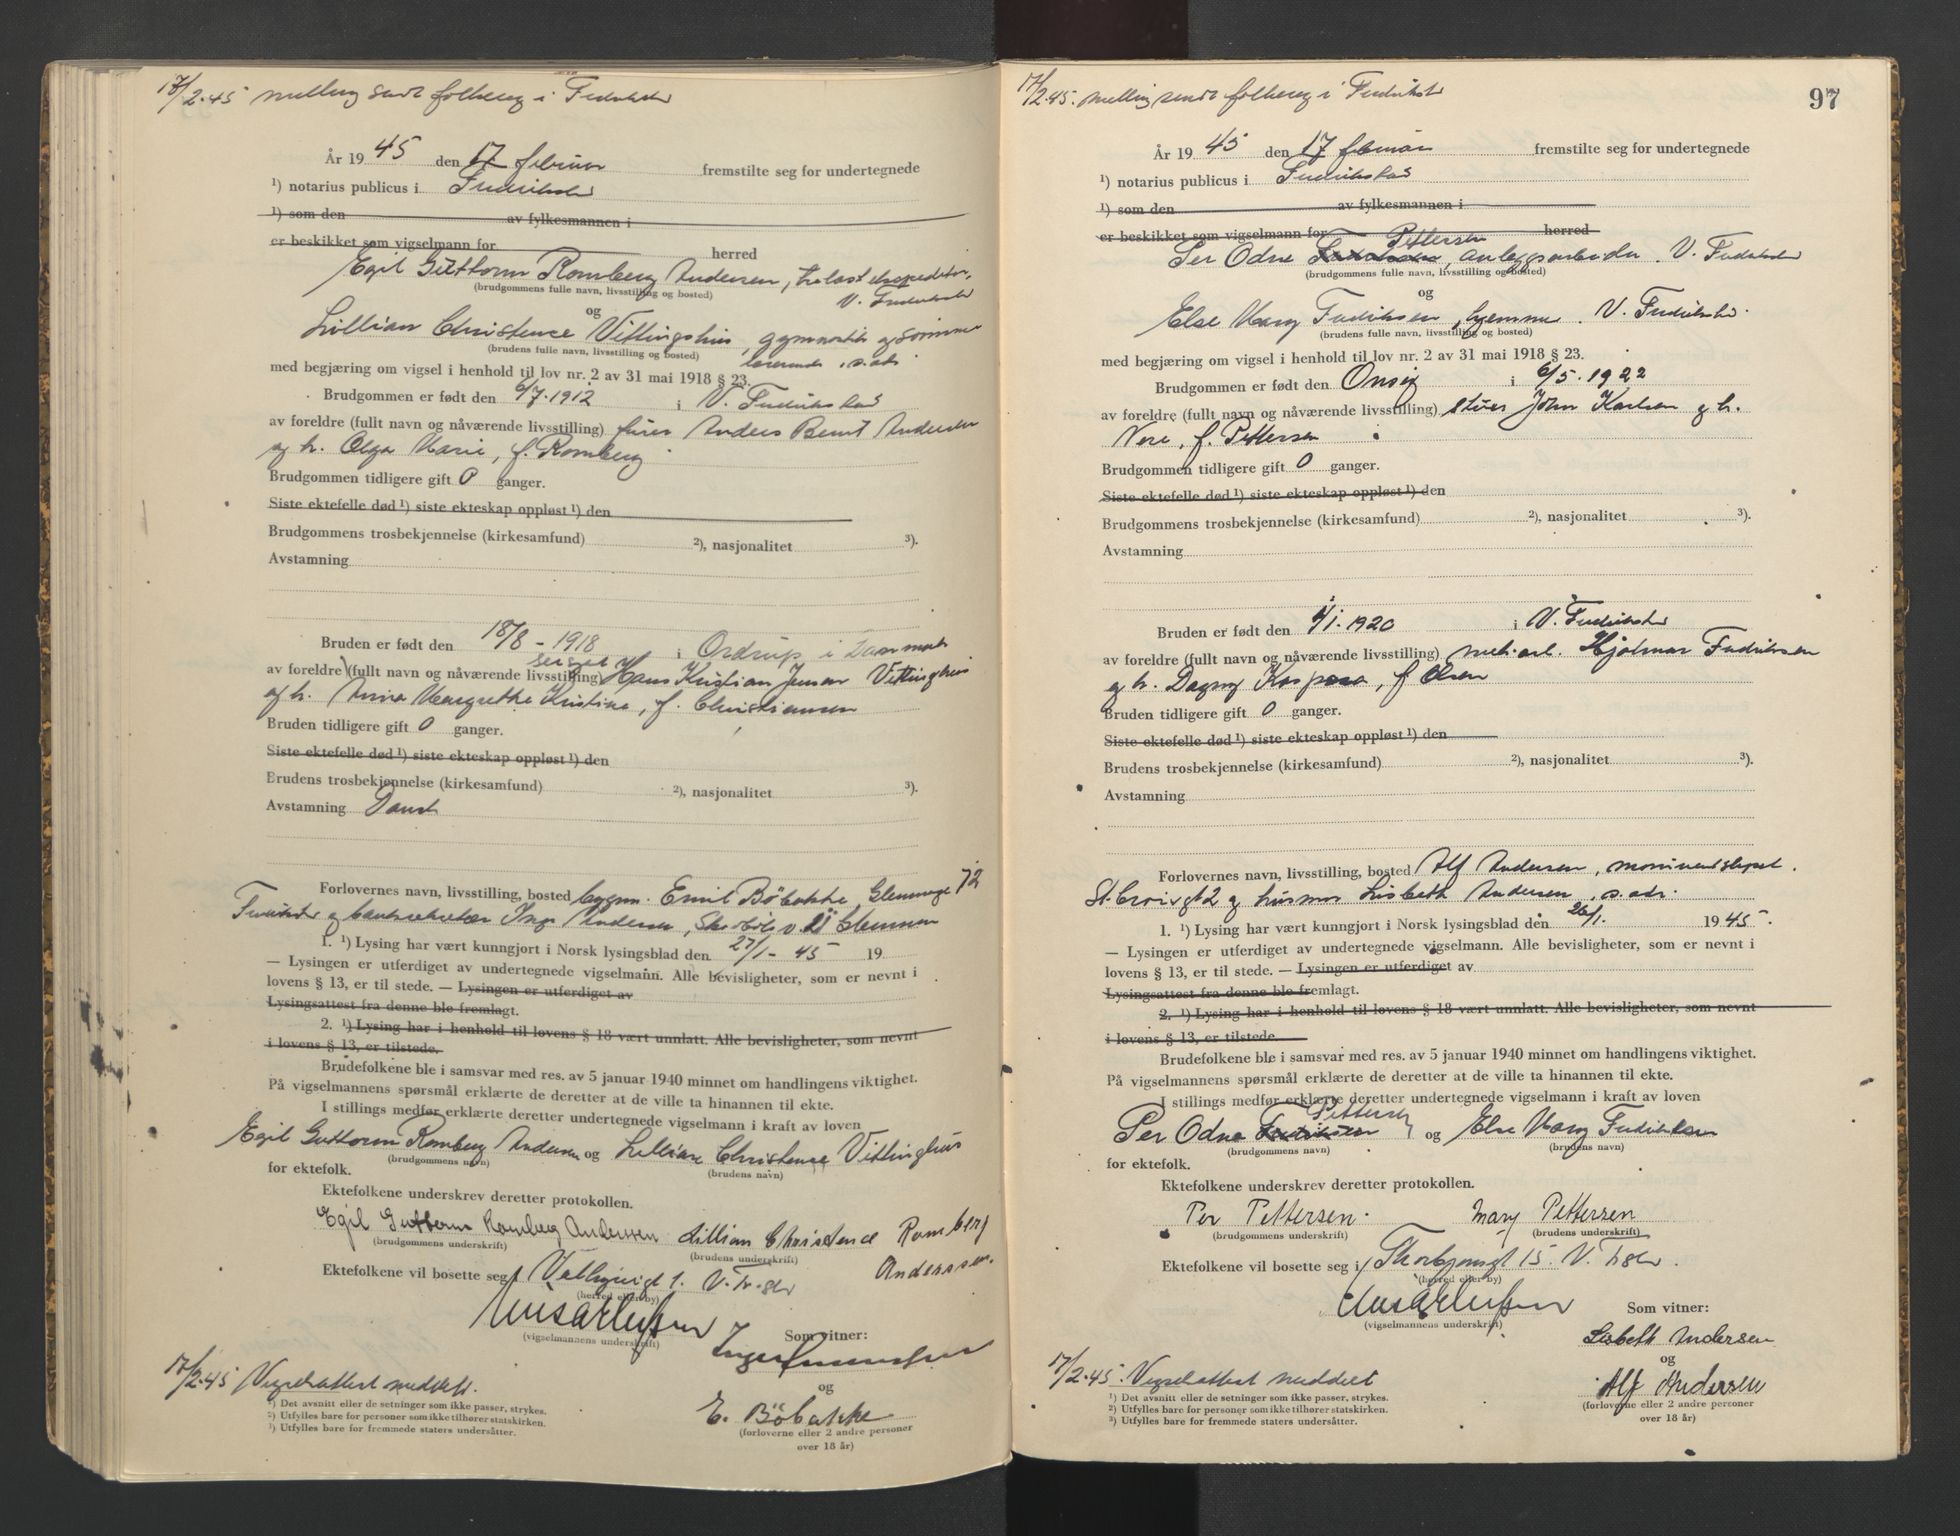 17/2.45 melding sendt folkereg i Fredrikstad
År 19 45 den 17 februar fremstilte seg for undertegnede
¹) notarius publicus i Fredrikstad
¹) som den av fylkesmannen i
er beskikket som vigselmann for herred
Egil Guttorm Romberg Andersen, trelastekspeditør,
(brudgommens fulle navn, livsstilling og bosted)
V. Fredrikstad
og
Lillian Christence Vittinghus, gymnastikk og svømme
(brudens fulle navn, livsstilling og bosted)
lærerinde, s. ads
med begjæring om vigsel i henhold til lov nr. 2 av 31 mai 1918 § 23.
Brudgommen er født den 6/7.1912 i V. Fredrikstad
av foreldre (fullt navn og nåværende livsstilling) Anders Bernt Andersen
og h. Olga Marie, f. Romberg
Brudgommen tidligere gift 0 ganger.
Siste ektefelle død ¹) siste ekteskap oppløst ¹) den
Brudgommens trosbekjennelse (kirkesamfund) ²), nasjonalitet ³).
Avstamning
Bruden er født den 18/8 - 1918 i Ordrup i Danmark
av foreldre (fullt navn og nåværende livsstilling) Hans Kristian Jensen Vittinghus
og h. Anna Margrethe Kristine, f. Christiansen
Bruden tidligere gift 0 ganger.
Siste ektefelle død ¹) siste ekteskap oppløst ¹) den
Brudens trosbekjennelse (kirkesamfund) ²), nasjonalitet ³).
Avstamning Dansk
Forlovernes navn, livsstilling, bosted bygm. Emil Böbakke, Glemmegt 72
og Inger Andersen, Glemmen
1. ¹) Lysing har vært kunngjort i Norsk lysingsblad den 27/1 - 45 19
— Lysingen er utferdiget av undertegnede vigselmann. Alle bevisligheter, som er nevnt i
lovens § 13, er til stede. — Lysingen er utferdiget av
Lysingsattest fra denne ble fremlagt.
2. ¹) Lysing har i henhold til lovens § 18 vært unnlatt. Alle bevisligheter, som nevnt
i lovens § 13, er tilstede.
Brudefolkene ble i samsvar med res. av 5 januar 1940 minnet om handlingens viktighet.
På vigselmannens spørsmål erklærte de deretter at de ville ta hinannen til ekte.
I stillings medfør erklærte deretter undertegnede vigselmann i kraft av loven
Egil Guttorm Romberg Andersen og Lillian Christence Vittinghus
(brudgommens navn) (brudens navn)
for ektefolk.
Ektefolkene underskrev deretter protokollen.
Egil Guttorm Romberg Anderssen Lillian Christence Romberg
(brudgommens underskrift) (brudens underskrift)
Anderssen.
Ektefolkene vil bosette seg i 1. V. Fr.stad
(herred eller by)
(vigselmannens underskrift)
Som vitner:
Inger
og
E. Böbakke
(forloverne eller 2 andre personer
over 18 år)
17/2.45 Vigselsattest meddelt.
¹) Det avsnitt eller de setninger som ikke passer, strykes.
²) Utfylles bare for personer som ikke tilhører statskirken.
³) Utfylles bare for fremmede staters undersåtter.
17/2.45. melding sendt folkereg i Fredrikstad
97
År 19 45 den 17 februar fremstilte seg for undertegnede
¹) notarius publicus i Fredrikstad
¹) som den av fylkesmannen i
er beskikket som vigselmann for herred
Pettersen
Per Odne Fredriksen, anleggsarbeider. V. Fredrikstad
(brudgommens fulle navn, livsstilling og bosted)
og
Else Mary Fredriksen, hjemme. V. Fredrikstad.
(brudens fulle navn, livsstilling og bosted)
med begjæring om vigsel i henhold til lov nr. 2 av 31 mai 1918 § 23.
Brudgommen er født den Onsøy i 6/5.1922
av foreldre (fullt navn og nåværende livsstilling) John Karlsen og h.
f. Pettersen
Brudgommen tidligere gift 0 ganger.
Siste ektefelle død ¹) siste ekteskap oppløst ¹) den
Brudgommens trosbekjennelse (kirkesamfund) ²), nasjonalitet ³).
Avstamning
Bruden er født den 1.1920 i V. Fredrikstad
av foreldre (fullt navn og nåværende livsstilling) mek. arb. Hjalmar Fredriksen
og h. Dagny Kaspara, f. Olsen
Bruden tidligere gift 0 ganger.
Siste ektefelle død ¹) siste ekteskap oppløst ¹) den
Brudens trosbekjennelse (kirkesamfund) ²), nasjonalitet ³).
Avstamning
Forlovernes navn, livsstilling, bosted Alf Andersen,
St. Croixgt 2 og husmor Lisbeth Andersen, s. ads.
1. ¹) Lysing har vært kunngjort i Norsk lysingsblad den 26/1. 1945.
— Lysingen er utferdiget av undertegnede vigselmann. Alle bevisligheter, som er nevnt i
lovens § 13, er til stede. — Lysingen er utferdiget av
Lysingsattest fra denne ble fremlagt.
2. ¹) Lysing har i henhold til lovens § 18 vært unnlatt. Alle bevisligheter, som nevnt
i lovens § 13, er tilstede.
Brudefolkene ble i samsvar med res. av 5 januar 1940 minnet om handlingens viktighet.
På vigselmannens spørsmål erklærte de deretter at de ville ta hinannen til ekte.
I stillings medfør erklærte deretter undertegnede vigselmann i kraft av loven
Pettersen
Per Odne Fredriksen og Else Mary Fredriksen
(brudgommens navn) (brudens navn)
for ektefolk.
Ektefolkene underskrev deretter protokollen.
Per Pettersen. Mary Pettersen
(brudgommens underskrift) (brudens underskrift)
Ektefolkene vil bosette seg i Thorbjørnsgt 15. V. Fr.stad.
(herred eller by)
(vigselmannens underskrift)
Som vitner:
Lisbeth Andersen
og
Alf Andersen
(forloverne eller 2 andre personer
over 18 år)
17/2.45. Vigselsattest meddelt
¹) Det avsnitt eller de setninger som ikke passer, strykes.
²) Utfylles bare for personer som ikke tilhører statskirken.
³) Utfylles bare for fremmede staters undersåtter.